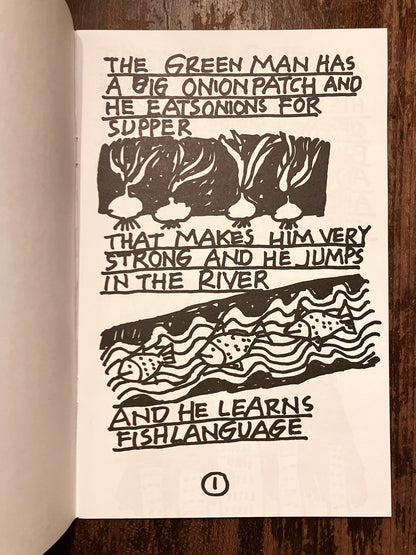 THE GREEN MAN HAS
A BIG ONIONPATCH AND
HE EATSONIONS FOR
SUPPER
THAT MAKES HIM VERY
STRONG AND HE JUMPS
IN THE RIVER
AND HE LEARNS
FISHLANGUAGE
1